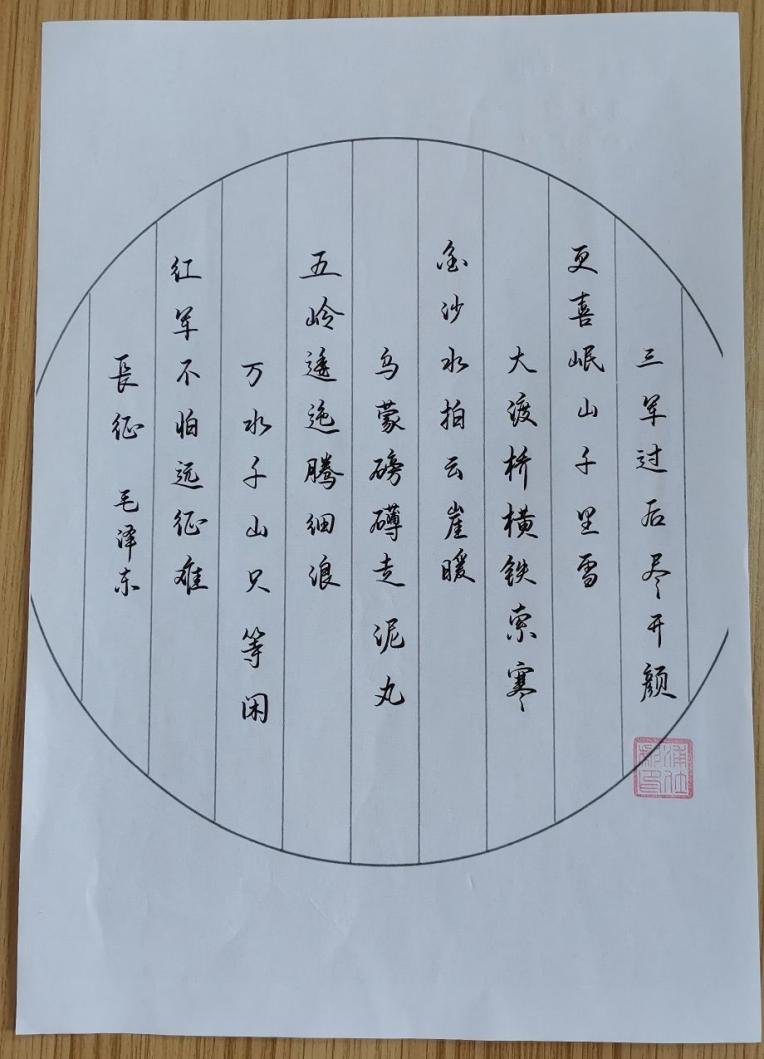 長征 毛泽东
红军不怕远征难
万水千山只等闲
五岭逶迤腾细浪
乌蒙磅礴走泥丸
金沙水拍云崖暖
大渡桥横铁索寒
更喜岷山千里雪
三军过后尽开颜